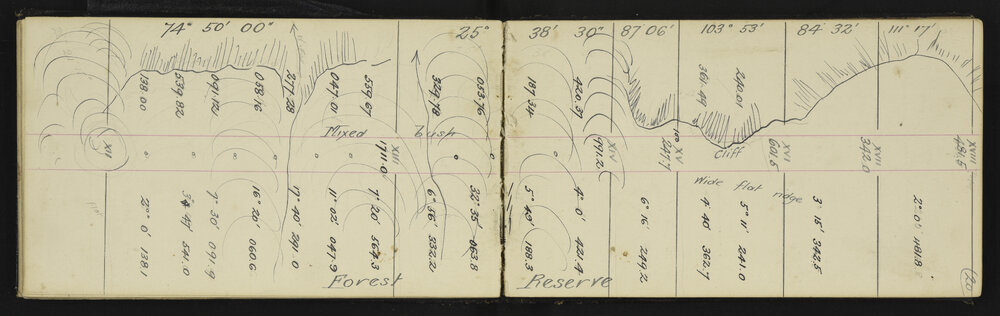 74° 50' 00" 25° 38' 30" 87° 06' 103° 53' 84° 32' 111° 17'
138.00
539.82
091.72
058.16
277.28
047.01
559.67
329.78
053.76
187.34
420.37
361.49
240.01
Mixed bush
Cliff
XII
XIII
1711.0
XIV
991.2
XV
247.7
XVI
601.5
XVII
342.0
XVIII
481.5
Wide flat ridge
2° 0' 138.1
7° 30' 091.9
16° 20' 060.6
17° 40' 291.0
11° 02' 047.9
7° 20' 564.3
6° 36' 332.2
32° 35' 063.8
5° 45' 188.3
4° 0' 421.4
6° 16' 249.2
4° 40' 362.7
5° 11' 241.0
3° 15' 342.5
2° 0' 481.8
Forest Reserve
20